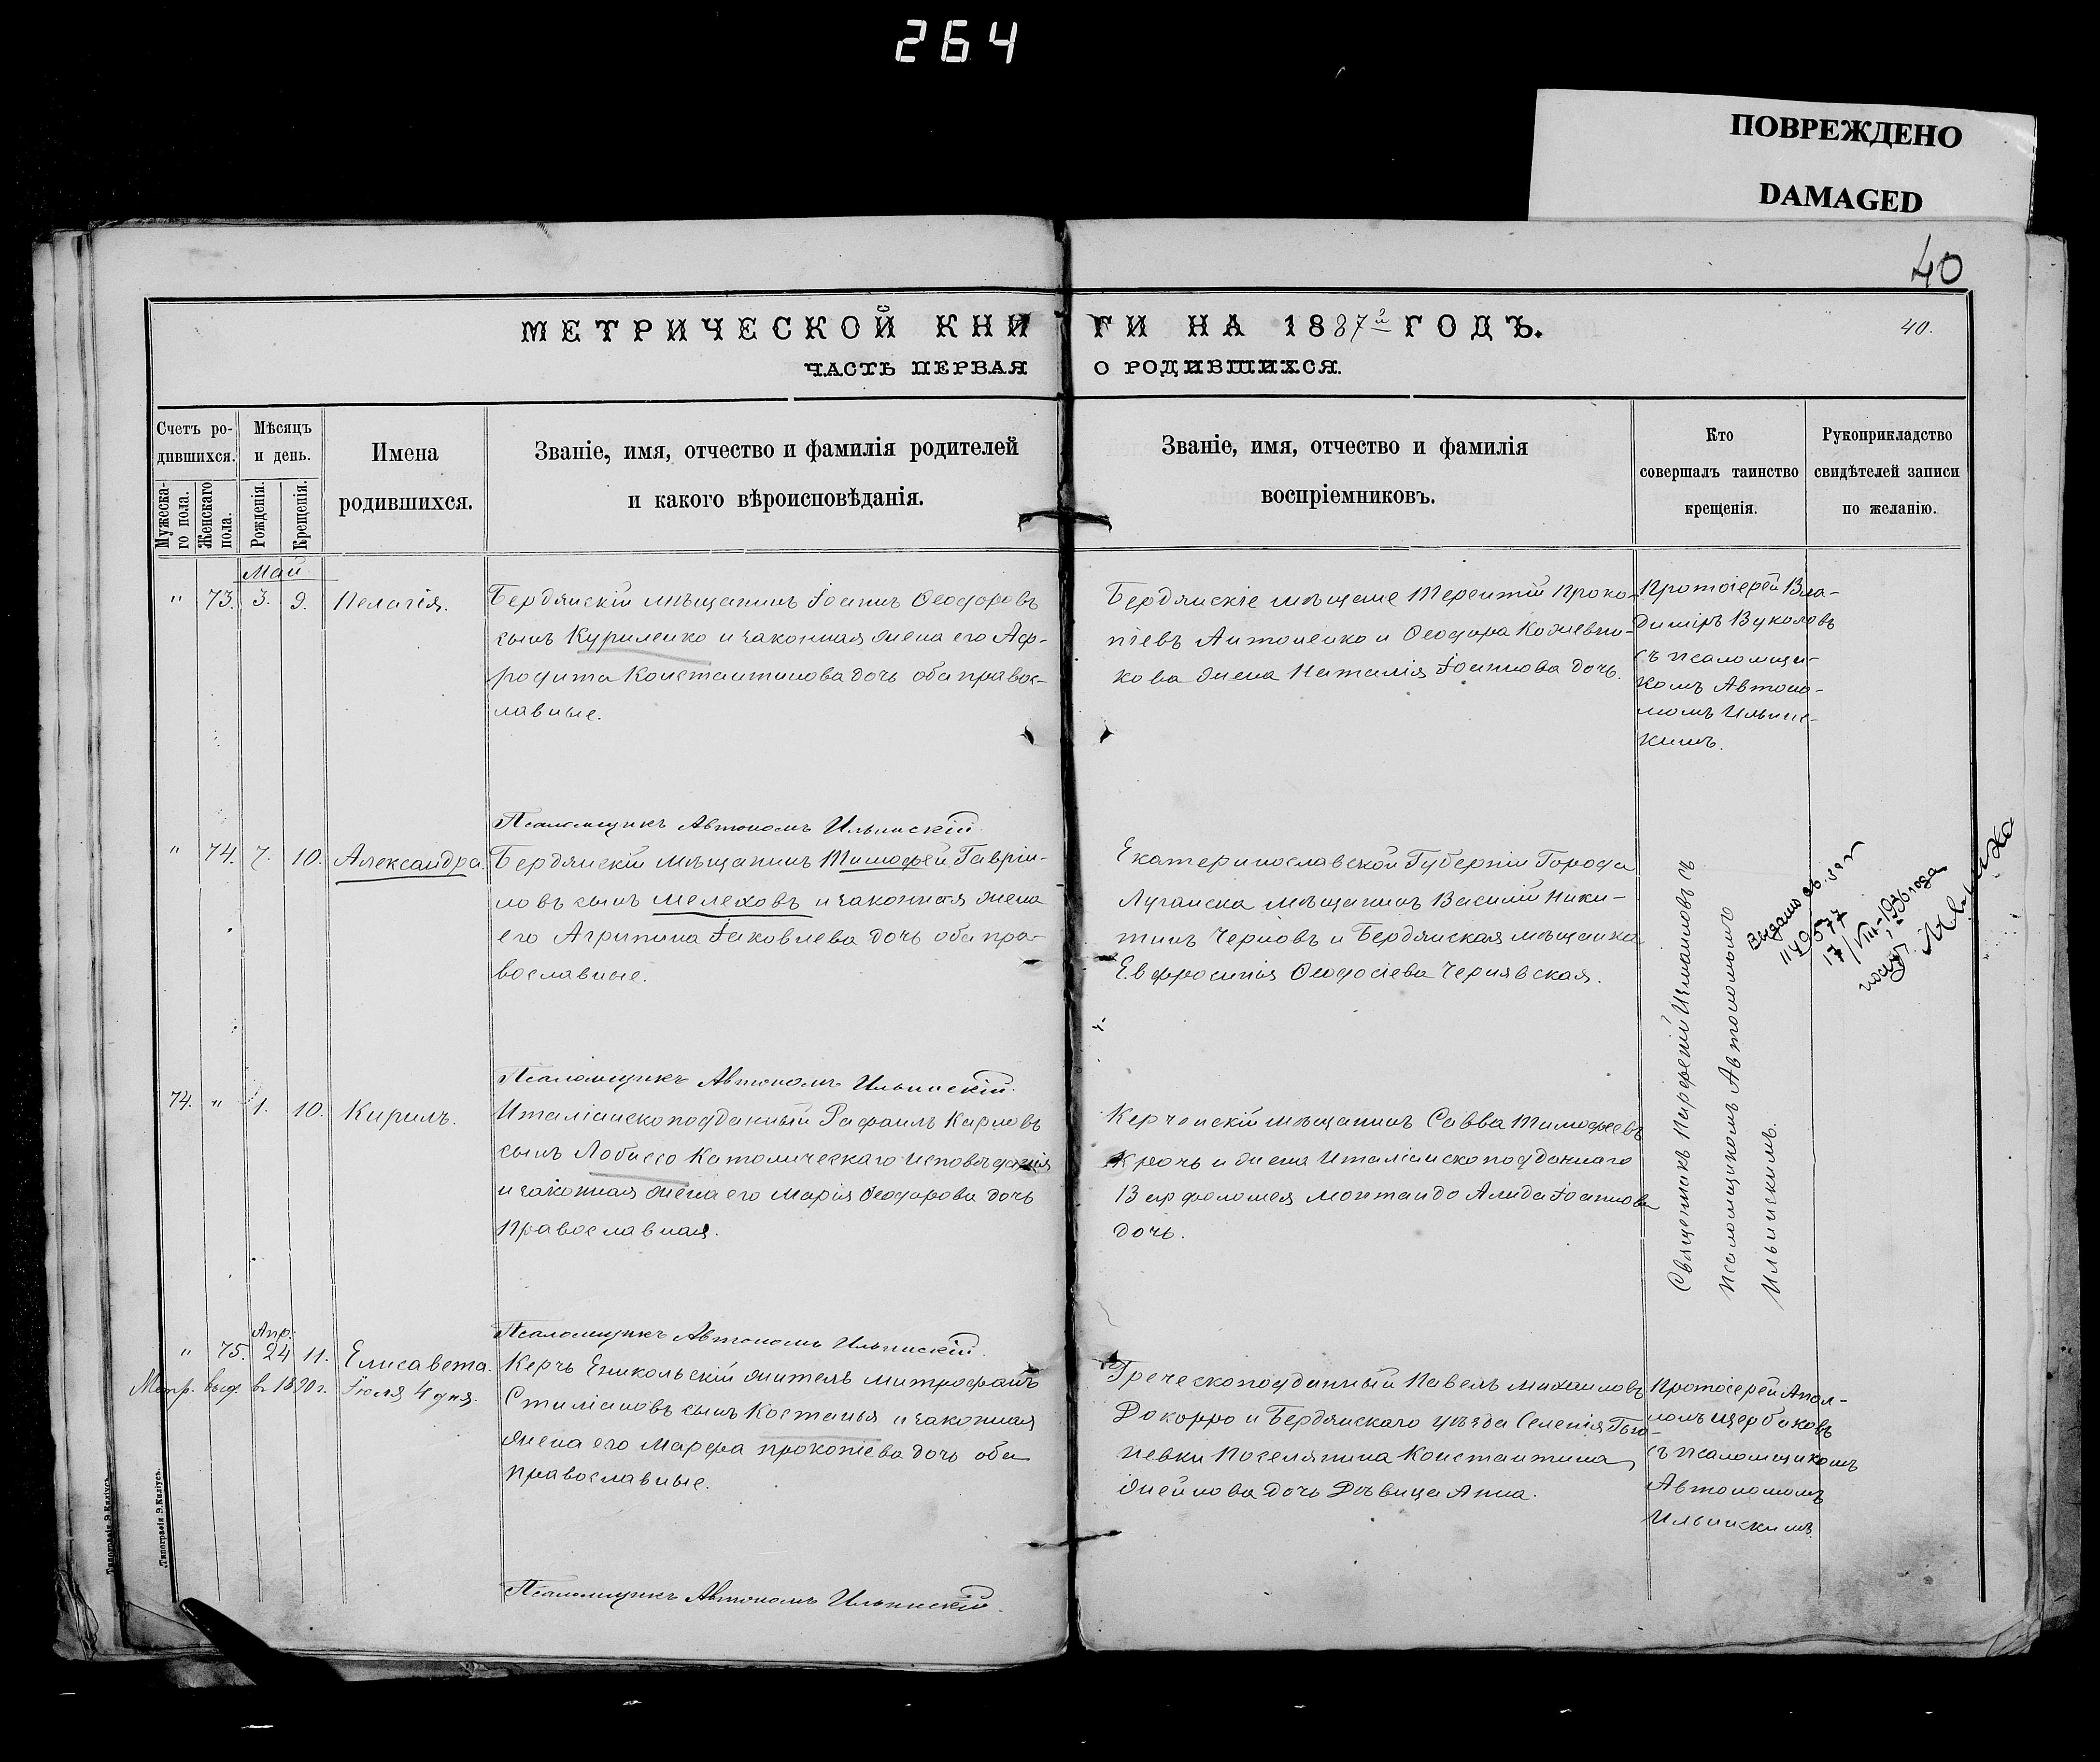 264
ПОВРЕЖДЕНО
DAMAGED
40
МЕТРИЧЕСКОЙ КНИГИ НА 1887й ГОДЪ.
40.
ЧАСТЬ ПЕРВАЯ О РОДИВШИХСЯ.
Счетъ ро-
дившихся.
Мужеска-
го пола.
Женскаго
пола.
Мѣсяцъ
и день.
Рожденія.
Крещенія.
Имена
родившихся.
Званіе, имя, отчество и фамилія родителей
и какого вѣроисповѣданія.
Званіе, имя, отчество и фамилія
воспріемниковъ.
Кто
совершалъ таинство
крещенія.
Рукоприкладство
свидѣтелей записи
по желанію.
Май
" 73. 3. 9. Пелагія.
Бердянскій мѣщанинъ Іоаннъ Ѳеодоровъ
сынъ Куриленко и законная жена его Аф-
родита Константинова дочь оба правос-
лавные.
Бердянскіе мѣщане Терентій Проко-
піевъ Антоненко и Ѳеодора Кожевни-
кова жена Наталія Іоаннова дочь.
Протоіерей Вла-
диміръ Вуколовъ
съ псаломщи-
комъ Автоно-
момъ Ильинс-
кимъ.
Псаломщикъ Автономъ Ильинскій.
" 74. 7. 10. Александра.
Бердянскій мѣщанинъ Тимофей Гаврии-
ловъ сынъ Мелеховъ и законная жена
его Агрипина Іаковлева дочь оба пра-
вославные.
Екатеринославской Губерніи Города
Луганска мѣщанинъ Василій Ники-
тинъ Черновъ и Бердянская мѣщанка
Евфросинія Ѳеодосіева Чернявская.
Священникъ Парфеній Измаиловъ съ
псаломщикомъ Автономомъ
Ильинскимъ.
Выдано св.
17/VIII-1936 года
Псаломщикъ Автономъ Ильинскій.
74. " 1. 10. Кирилъ.
Италіанскоподданный Рафаилъ Карловъ
сынъ Лобассо Католическаго исповѣданія
и законная жена его Марія Ѳеодорова дочь
православная.
Керченскій мѣщанинъ Савва Тимофеевъ
Крочь и жена Италіанскоподданнаго
Варфоломея Монтандо Алида Іоаннова
дочь.
Псаломщикъ Автономъ Ильинскій.
Апр.
" 75. 24 11. Елисавета.
Метр. выд. в 1890 г. Іюля 4 дня.
Керчь Еникольскій житель Митрофанъ
Стиліановъ сынъ Костанья и законная
жена его Марфа Прокопіева дочь оба
православные.
Греческоподданный Павелъ Михаиловъ
Докорро и Бердянскаго уѣзда Селенія Гью-
невки Поселянина Константина
дочь Дѣвица Анна.
Протоіерей Апол-
лонъ Щербаковъ
съ псаломщикомъ
Автономомъ
Ильинскимъ.
Псаломщикъ Автономъ Ильинскій.
Типографія Э. Киліусъ.
Типографія Э. Киліусъ.